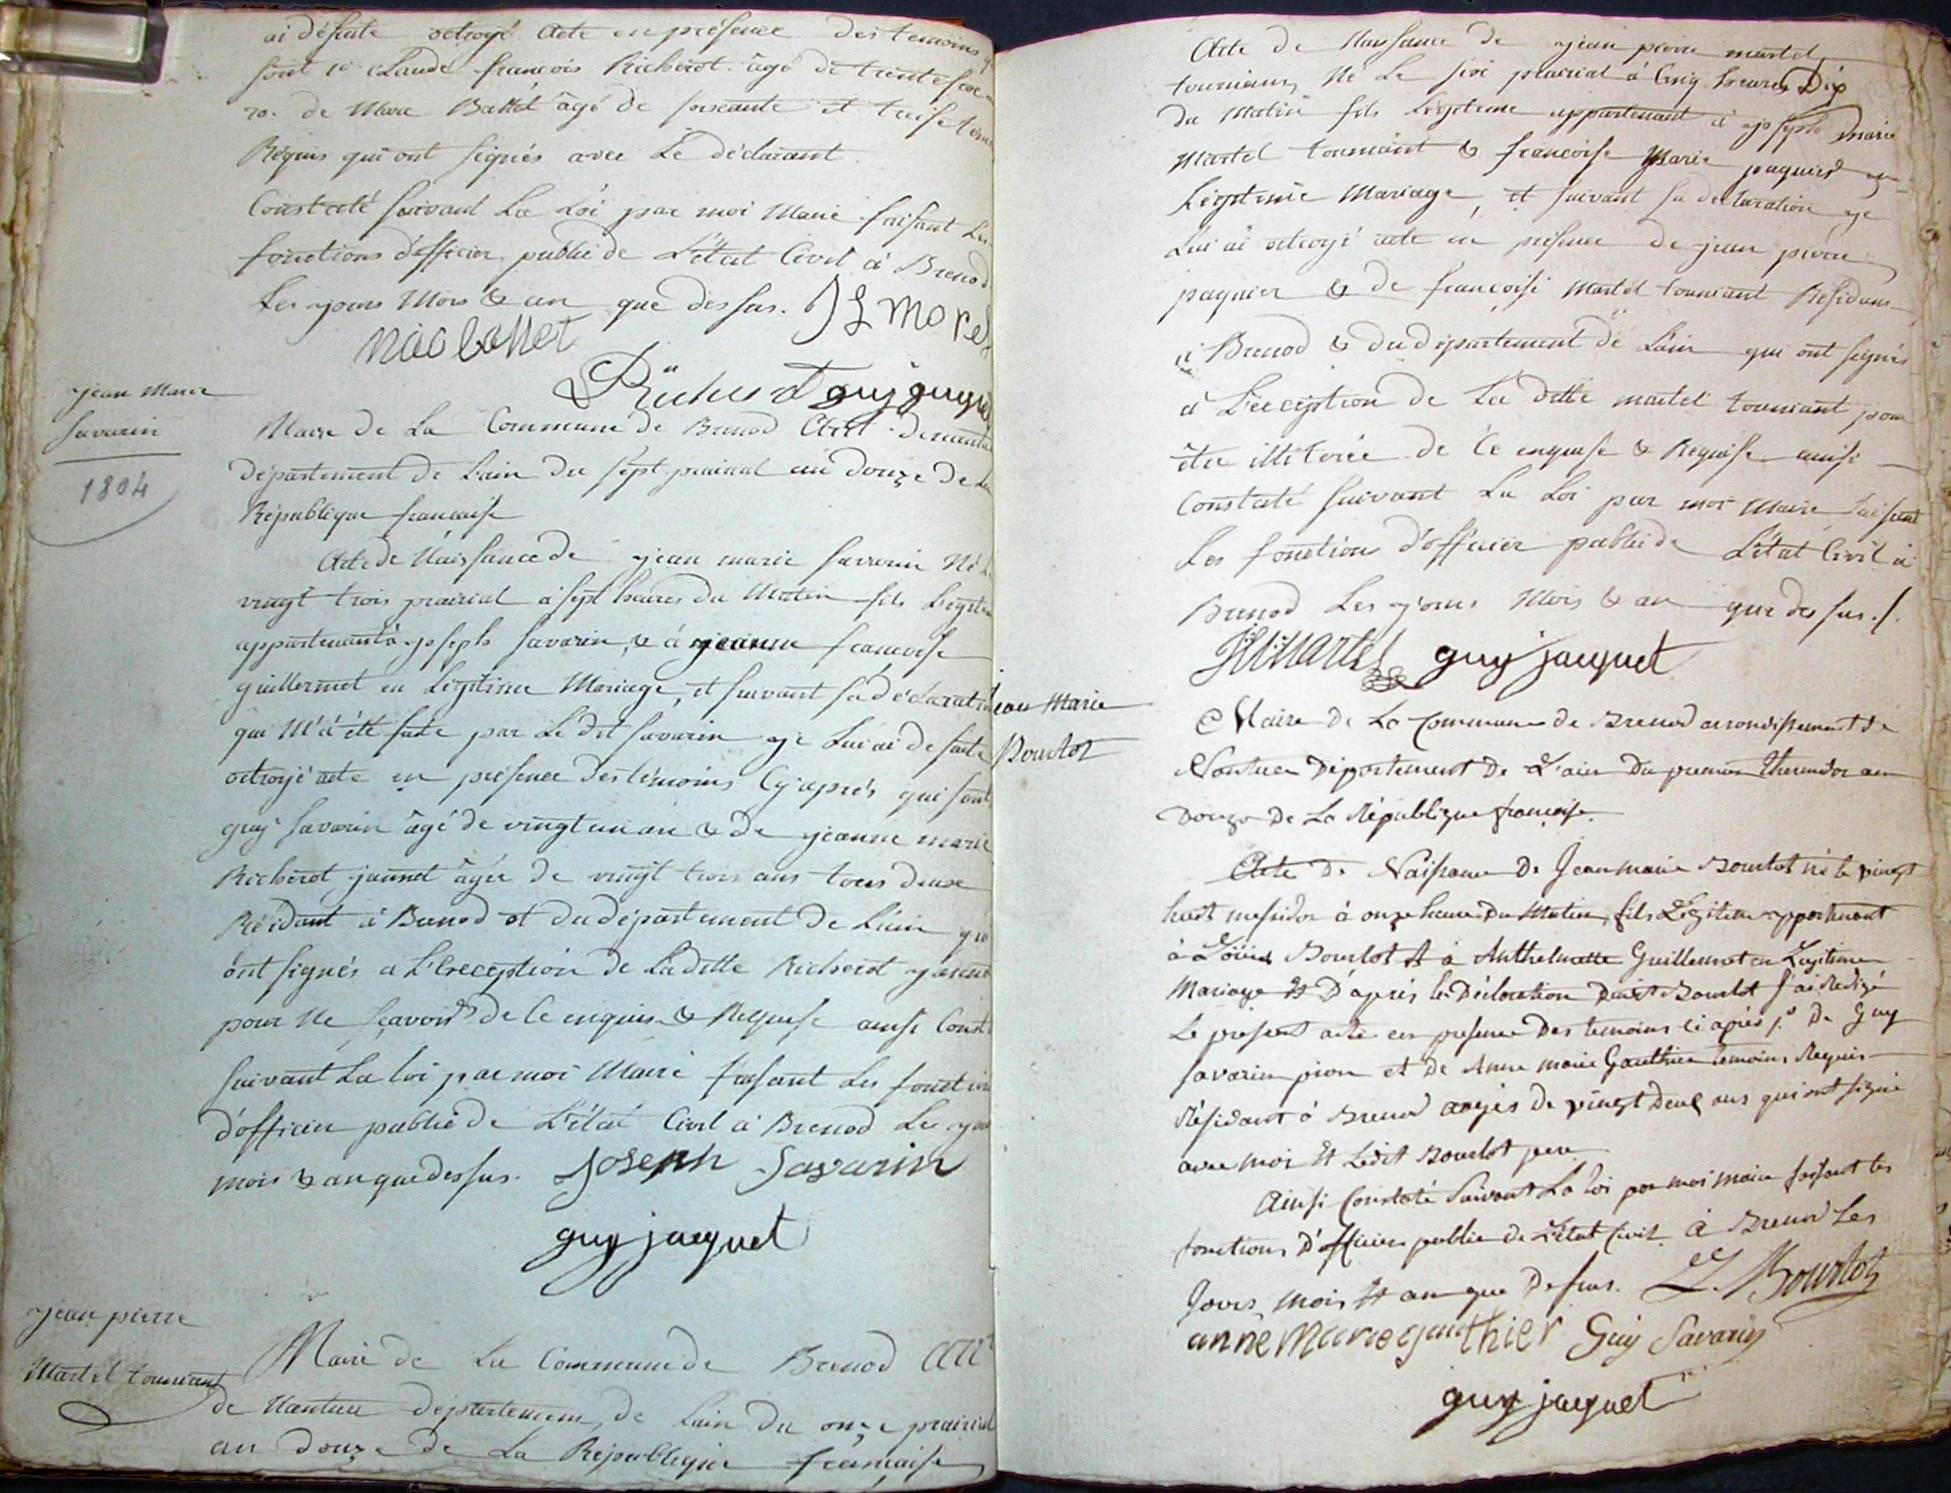 ai desuite octroyé acte en présence des temoins
sont 1º Claude francois Richerot âgé de trente
20. de Marc Ballet âgé de soixante et treise
Réquis qui ont signés avec Le déclarant
Constaté suivant La Loi par moi Maire faisant Les
fonctions d'officier public de L'état Civil à Brenod
Les jours Mois & an que dessus. J L Morel
Richerot guy jaque
jean Marie
Savarin
1804
Maire de La Commune de Brenod Arrt. de nantua
département de L'ain du sept prairial an douze de La
République francaise
Acte de Naissance de jean marie Savarin Né
vingt trois prairial à sept heures du Matin fils Legiti
appartenant à joseph Savarin, & à jeanne francoise
guillermet en Légitime Mariage, et suivant sa déclarati
qui M'a été faite par Le dit Savarin je Lui ai de suite
octroyé acte en présence des témoins Cy après qui sont
guy Savarin âgé de vingt un an & de jeanne marie
Richerot jannet âgée de vingt trois ans tous deux
Résidant à Brenod et du département de L'ain qui
ont signés a L'Exception de Laditte Richerot janne
pour Ne sçavoir de Ce enquise & Requise ainsi Const
suivant La loi par moi Maire faisant Les fonction
d'officier public de L'état Civil à Brenod Les jou
mois & an que dessus. Joseph Savarin
guy jacquet
jean pierre
Martel tournant
Maire de La Commune de Brenod Arrt
de Nantua département de L'ain du onze prairial
an douze de La République francaise
Acte de Naissance de jean pierre martel
Né Le six prairial à Cinq heures
du Matin fils Légitime appartenant à joseph marie
Martel tournant & francoise Marie paquier en
Légitime Mariage, et suivant sa déclaration je
Lui ai octroyé acte en présence de jean pierre
paquier & de francoise Martel tournant Résidans
à Brenod & du département de L'ain qui ont signés
à L'exception de La ditte martel tournant pour
être illitérée de Ce enquise & Requise ainsi
Constaté suivant La Loi par moi Maire faisant
Les fonctions d'officier public de L'état Civil à
Brenod Les jours Mois & an que dessus ./.
Martel guy jacquet
jean Marie
Bourlot
Maire de La Commune de Brenod arrondissement de
Nantua Département De L'ain Du premier thermidor an
Douze De La République françoise.
Acte De Naissance De Jean marie Bourlot né le vingt
huit messidor à onze heure Du Matin, fils Légitime appartenant
à Louis Bourlot et à Anthelmette Guillermet en Légitime
Mariage et D'après la Déclaration Dudit Bourlot j'ai Redigé
Le présent acte en presence Des temoins ci après 1.º De Guy
Savarin et De Anne marie Gauthier temoins Requis
Résidant à Brenod aagés de vingt Deux ans qui ont signé
avec moi et Ledit Bourlot pere
Ainsi Constaté suivant La loi par moi maire faisant les
fonctions D'officier public de L'état Civil à Brenod Les
Jours, mois et an que Dessus. L. Bourlot
anne Marie gauthier Guy Savarin
guy jacquet